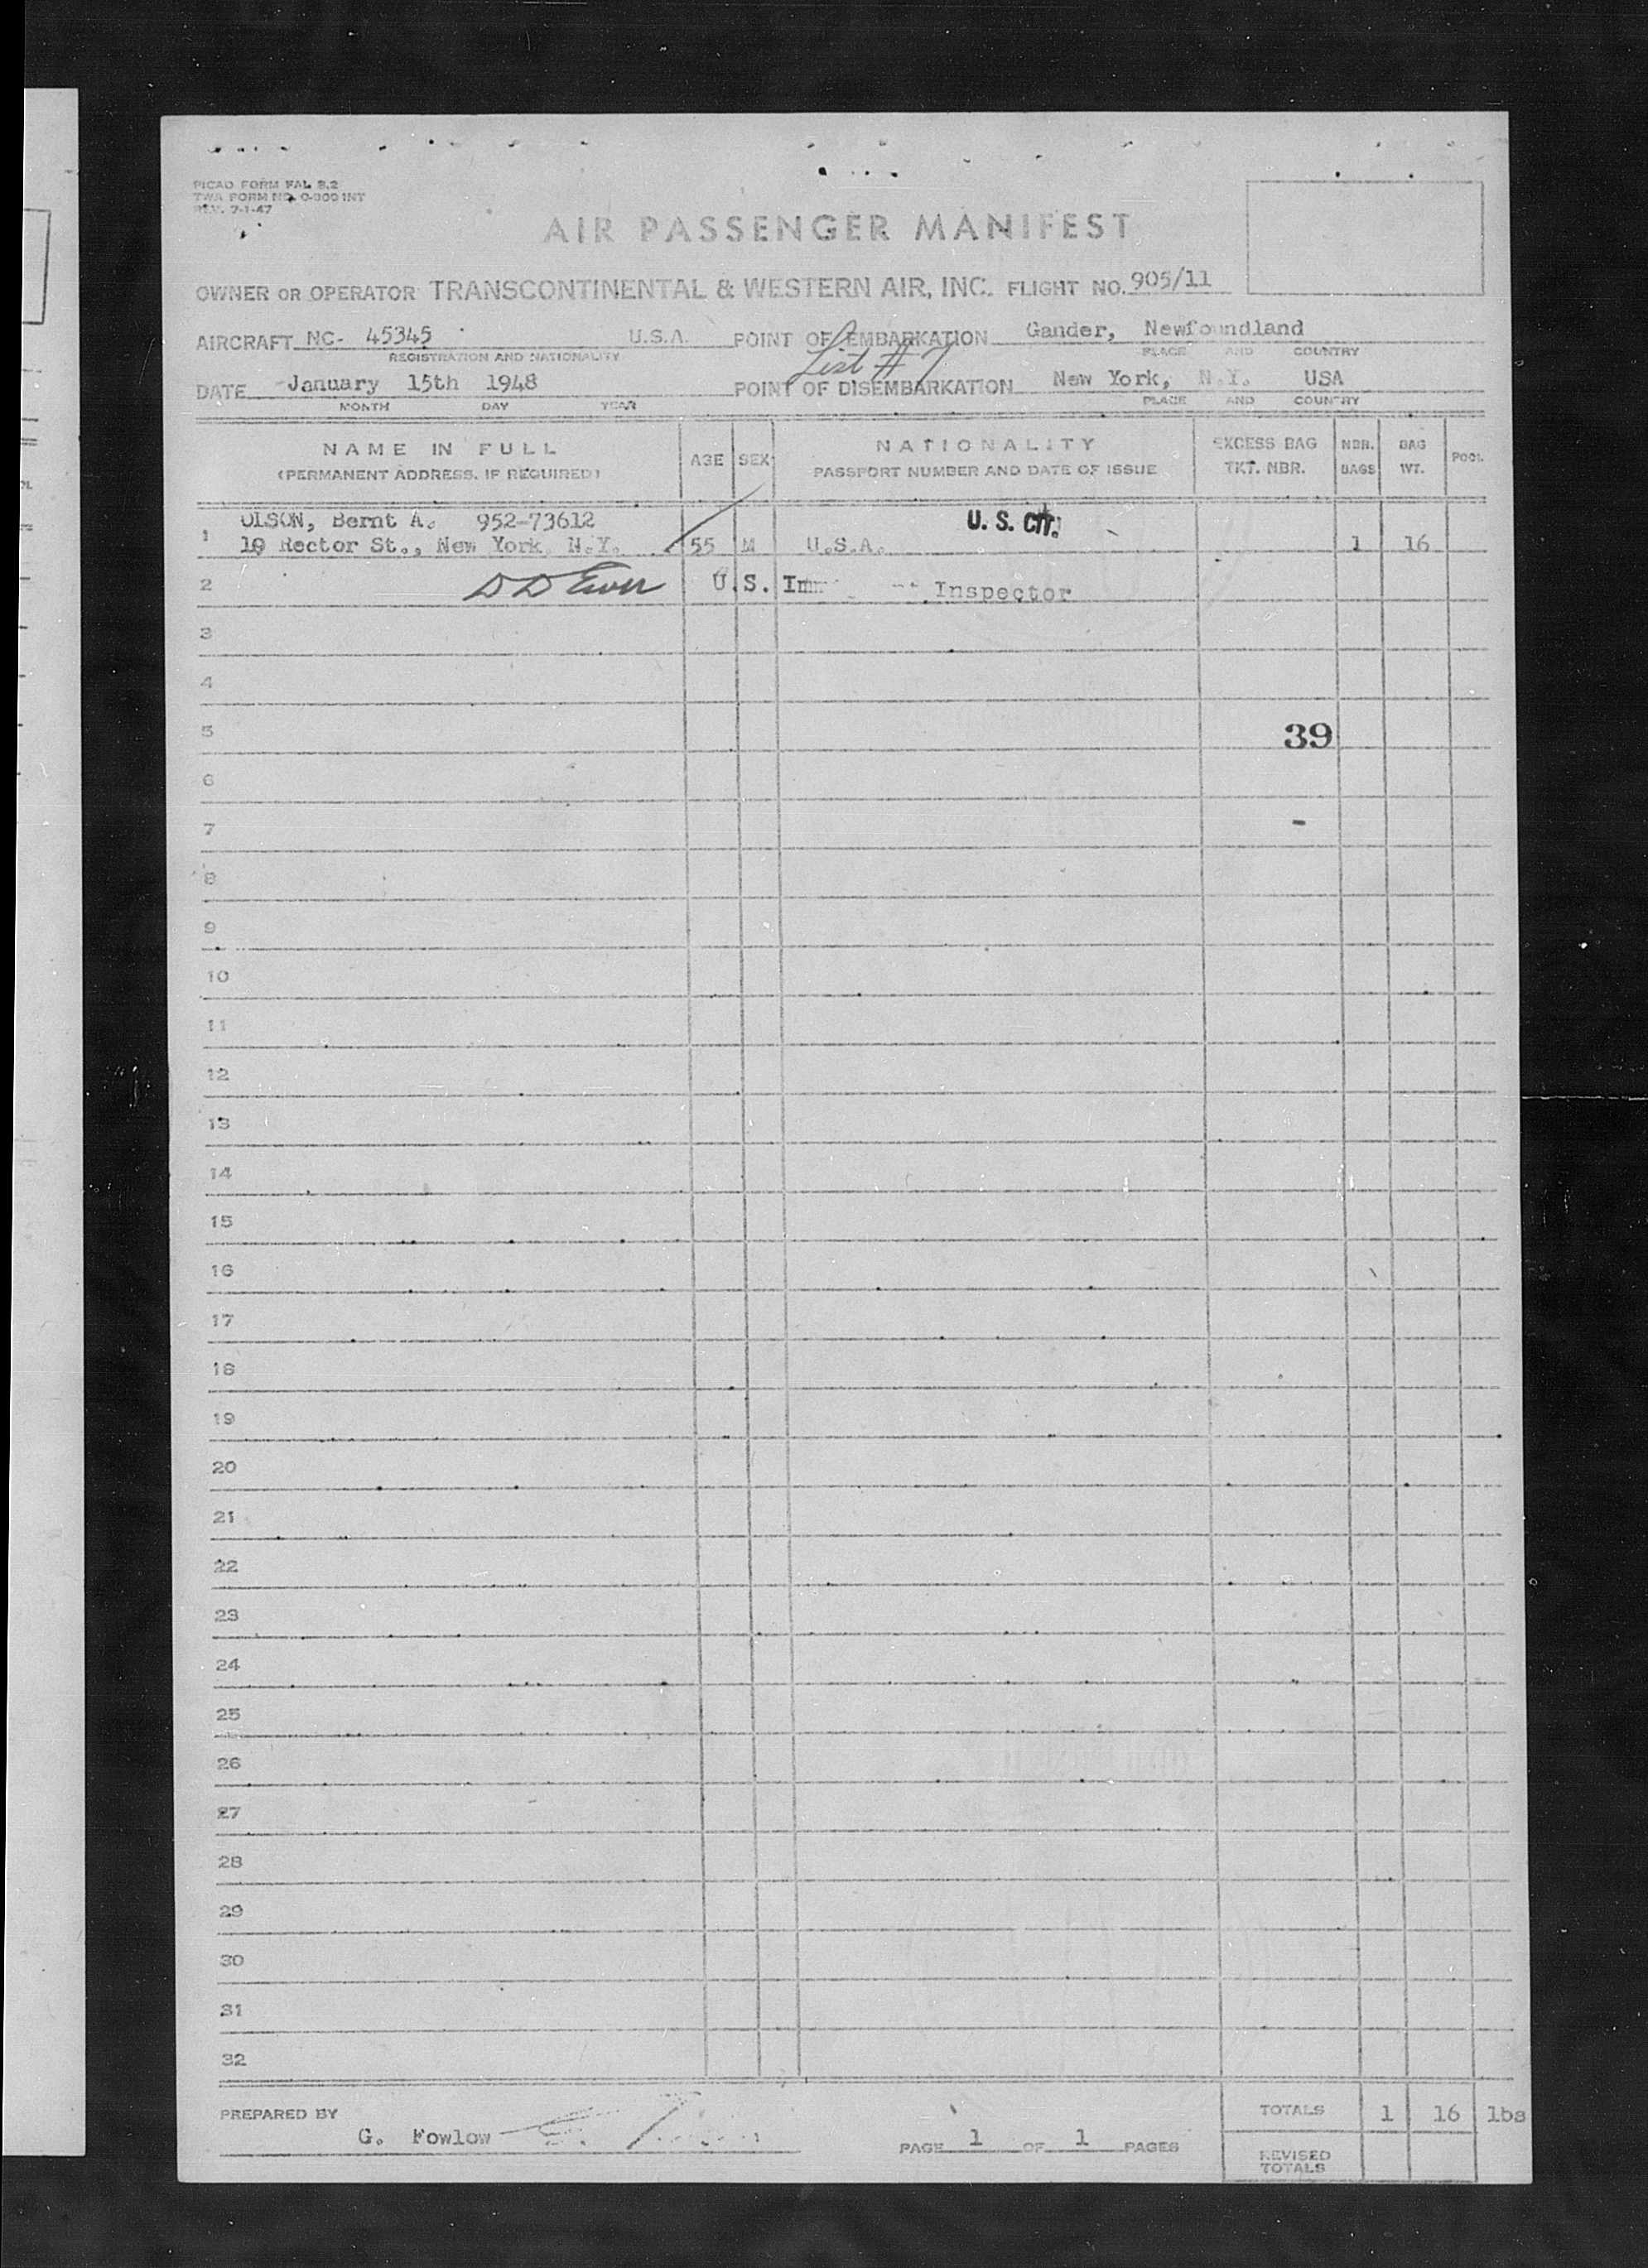 PICAO FORM FAL 8.2
TWA FORM NO. O-300 INT
REV. 7-1-47
AIR PASSENGER MANIFEST
OWNER OR OPERATOR TRANSCONTINENTAL & WESTERN AIR, INC. FLIGHT NO. 905/11
AIRCRAFT NC- 45345 U.S.A. POINT OF EMBARKATION Gander, Newfoundland
REGISTRATION AND NATIONALITY PLACE AND COUNTRY
List # 7
DATE January 15th 1948 POINT OF DISEMBARKATION New York, N.Y. USA
MONTH DAY YEAR PLACE AND COUNTRY
NAME IN FULL AGE SEX NATIONALITY EXCESS BAG NBR. BAG POOL
(PERMANENT ADDRESS, IF REQUIRED) PASSPORT NUMBER AND DATE OF ISSUE TKT. NBR. BAGS WT.
OLSON, Bernt A. 952-73612 U. S. CIT.
1 19 Rector St., New York N.Y. 55 M U.S.A. 1 16
2 U.S. Inspector
3
4
5 39
6
7
8
9
10
11
12
13
14
15
16
17
18
19
20
21
22
23
24
25
26
27
28
29
30
31
32
PREPARED BY TOTALS 1 16 lbs
G. Fowlow PAGE 1 OF 1 PAGES
REVISED
TOTALS